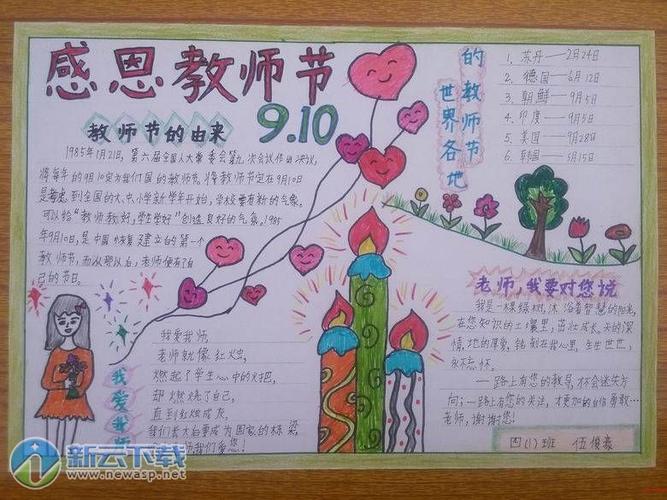 感恩教师节
9.10
教师节的由来
1985年1月21日,第六届全国人大常委会第九次会议作出决议,
将每年的9月10定为我们国的教师节,将教师节定在9月10日
是考虑到全国的大、中、小学新学年开始,学校要有新的气象。
可以给“教师教好,学生学好”创造良好的气象。1985
年9月10日,是中国恢复建立的第一个
教师节,而从那以后,老师便有了自
己的节日。
世界各地
的教师节
1、苏丹——2月24日
2、德国——6月12日
3、朝鲜——9月5日
4、印度——9月5日
5、美国——9月28日
6、韩国——5月15日
老师,我要对您说
我是一棵绿树,沐浴着智慧的阳光,
在您知识的土壤里,茁壮成长,天的深
情,地的厚爱,铭刻在我心里,生生世世,
永不忘怀。
一路上有您的教导,不会迷失方
向;一路上有您的关注,才更加的自信勇敢…
老师,谢谢您!
我爱我师
我爱我师,
老师就像红烛,
燃起了学生心中的火把,
却燃烧了自己,
直到红烛成灰。
我们长大后要成为国家的栋梁,
师我们爱您!
四(1)班 伍俊豪
新云下载
www.newasp.net